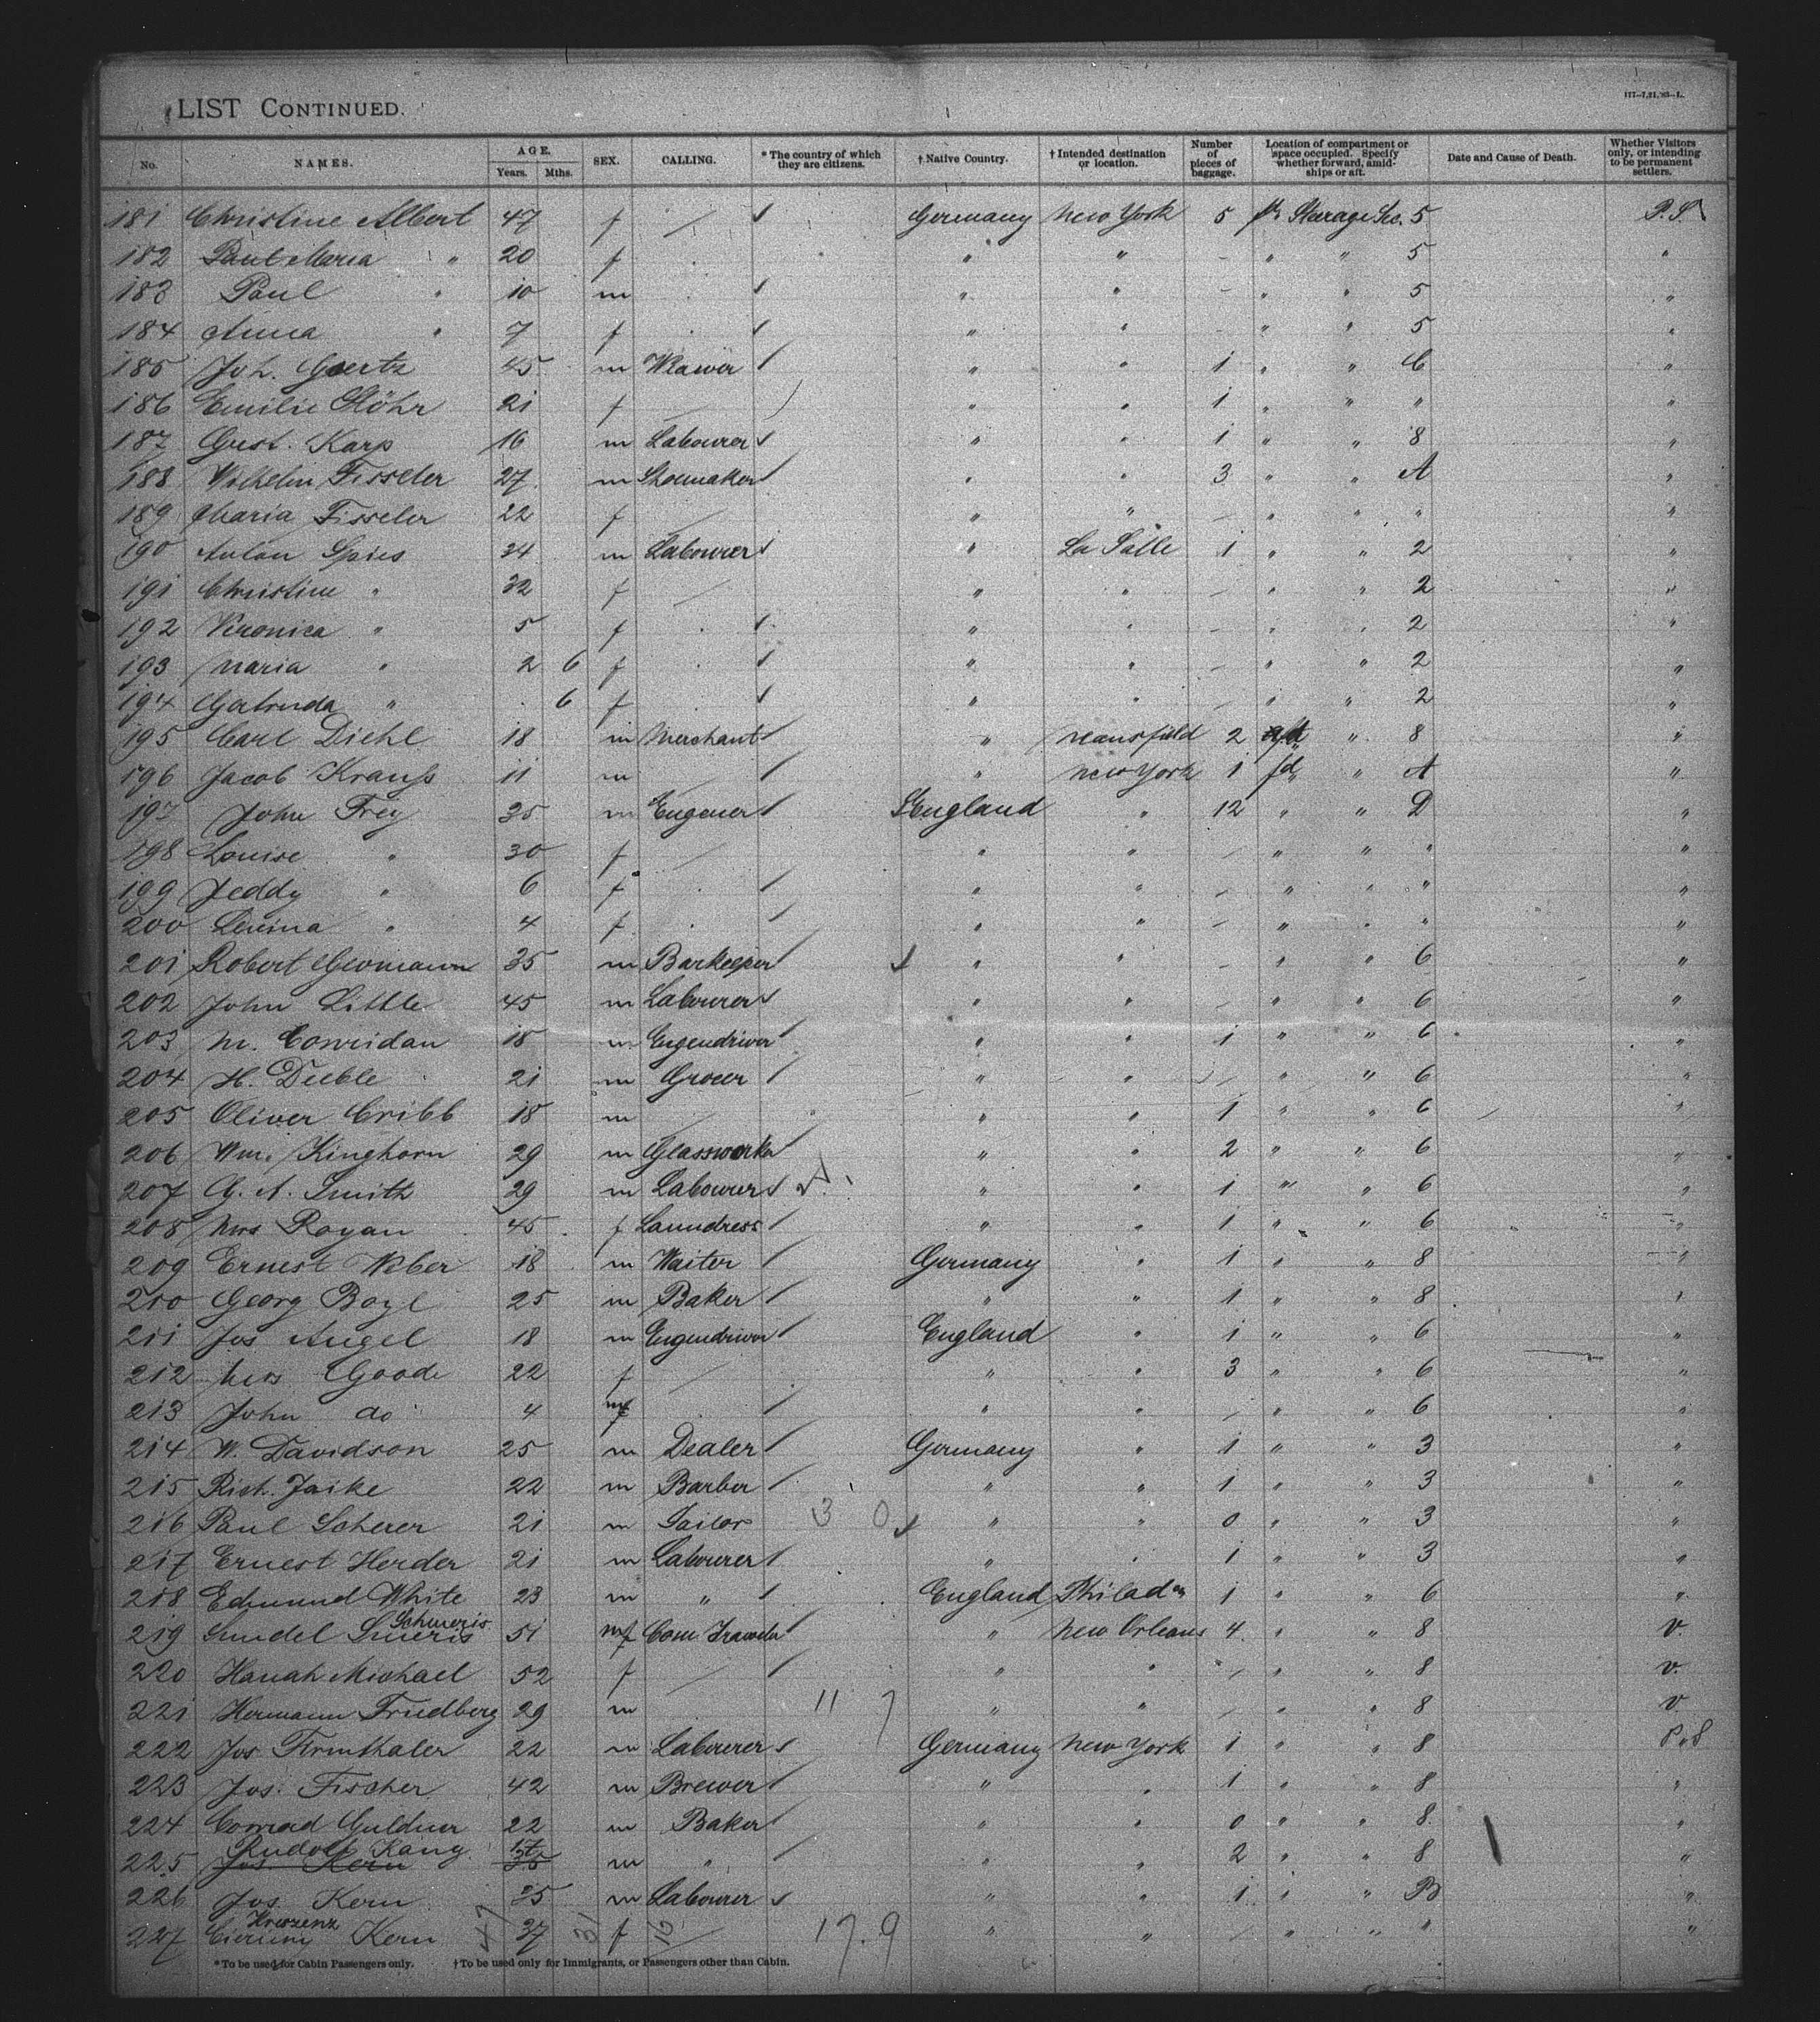 LIST CONTINUED.
177—7,21,'93—L.
No. NAMES. AGE. Years. Mths. SEX. CALLING. * The country of which they are citizens. † Native Country. † Intended destination or location. Number of pieces of baggage. Location of compartment or space occupied. Specify whether forward, amidships or aft. Date and Cause of Death. Whether Visitors only, or intending to be permanent settlers.
181 Christine Albert 47 f / Germany New York 5 Steerage Sec. 5 P.S.
182 Maria " 20 f " " - " " 5 "
183 Paul " 10 m " " - " " 5 "
184 Anna " 7 f " " - " " 5 "
185 Joh. Goertz 45 m Weawer " " 1 " " C "
186 Emilie Stöhr 21 f / " " 1 " " " "
187 Gust. Karp 16 m Labourer " " 1 " " 8 "
188 Wilhelm Fisseler 27 m Shoemaker " " 3 " " A "
189 Maria Fisseler 22 f / " " - " " " "
190 Anton Spies 34 m Labourer " La Salle 1 " " 2 "
191 Christine " 32 f / " " - " " 2 "
192 Veronica " 5 f " " - " " 2 "
193 Maria " 2 6 f " " - " " 2 "
194 Gertruda " 6 f " " - " " 2 "
195 Carl Diehl 18 m Merchant " Mansfield 2 aft " 8 "
196 Jacob Krauß 11 m / " New York 1 fd " A "
197 John Frey 35 m Engener England " 12 " " D "
198 Louise " 30 f / " " - " " " "
199 Jeddy " 6 f " " - " " " "
200 " 4 f " " - " " " "
201 Robert 35 m Barkeeper " " - " " 6 "
202 John Little 45 m Labourer " " - " " 6 "
203 M. Conridan 18 m Engendriver " " 1 " " 6 "
204 H. Deeble 21 m Grocer " " - " " 6 "
205 Oliver Cribb 18 m / " " 1 " " 6 "
206 Wm. Kinghorn 29 m Glassworker " " 2 " " 6 "
207 G. A. Smith 29 m Labourer " " 1 " " 6 "
208 Mrs Rogan 45 f Laundress " " 1 " " 6 "
209 Ernest Weber 18 m Waiter Germany " 1 " " 8 "
210 Georg Bayl 25 m Baker " " 1 " " 8 "
211 Jos Angel 18 m Engendriver England " 1 " " 6 "
212 Mrs Goode 22 f / " " 3 " " 6 "
213 John do 4 m " " - " " 6 "
214 W. Davidson 25 m Dealer Germany " 1 " " 3 "
215 Rich. Jaike 22 m Barber " " 1 " " 3 "
216 Paul Scherer 21 m Tailor 3 0 " " 0 " " 3 "
217 Ernest Herder 21 m Labourer " " 1 " " 3 "
218 Edmund White 23 m " England Philada 1 " " 6 "
Schmeris
219 Smeris 51 Com Traveler " New Orleans 4 " " 8 V.
220 Hanah Michael 52 f / " " - " " 8 V.
221 Hermann Friedberg 29 m 11 7 " " - " " 8 V
222 Jos Firmthaler 22 m Labourer Germany New York 1 " " 8 P.S
223 Jos. Fischer 42 m Brewer " " 1 " " 8 "
224 Conrad Guldner 22 m Baker " " 0 " " 8 "
Rudolf Kang 17
225 Jos. Kern 35 m " " " 2 " " 8 "
226 Jos. Kern 35 m Labourer " " 1 " " B "
Kreszenz
227 Kern 37 f / 17.9 " " - " " " "
47 31 16
* To be used for Cabin Passengers only. † To be used only for Immigrants, or Passengers other than Cabin.